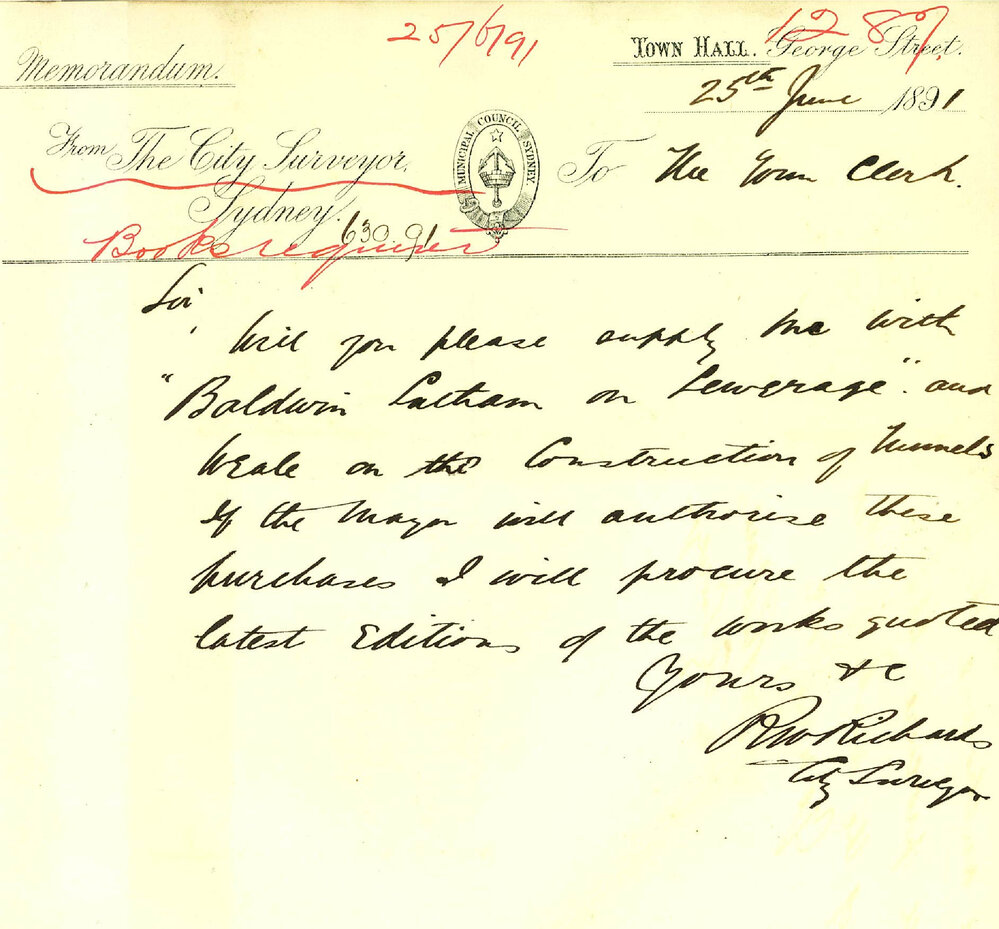 25/6/91
1287
Memorandum.
TOWN HALL. George Street.
25th June 1891
From The City Surveyor,
Sydney.
MUNICIPAL COUNCIL SYDNEY.
To The Town Clerk.
630.91
Books required
Sir,
Will you please supply me with
"Baldwin Latham on Sewerage". and
Weale on the Construction of Tunnels
If the Mayor will authorise these
purchases I will procure the
latest Editions of the works quoted
Yours &c
RWRichards
City Surveyor